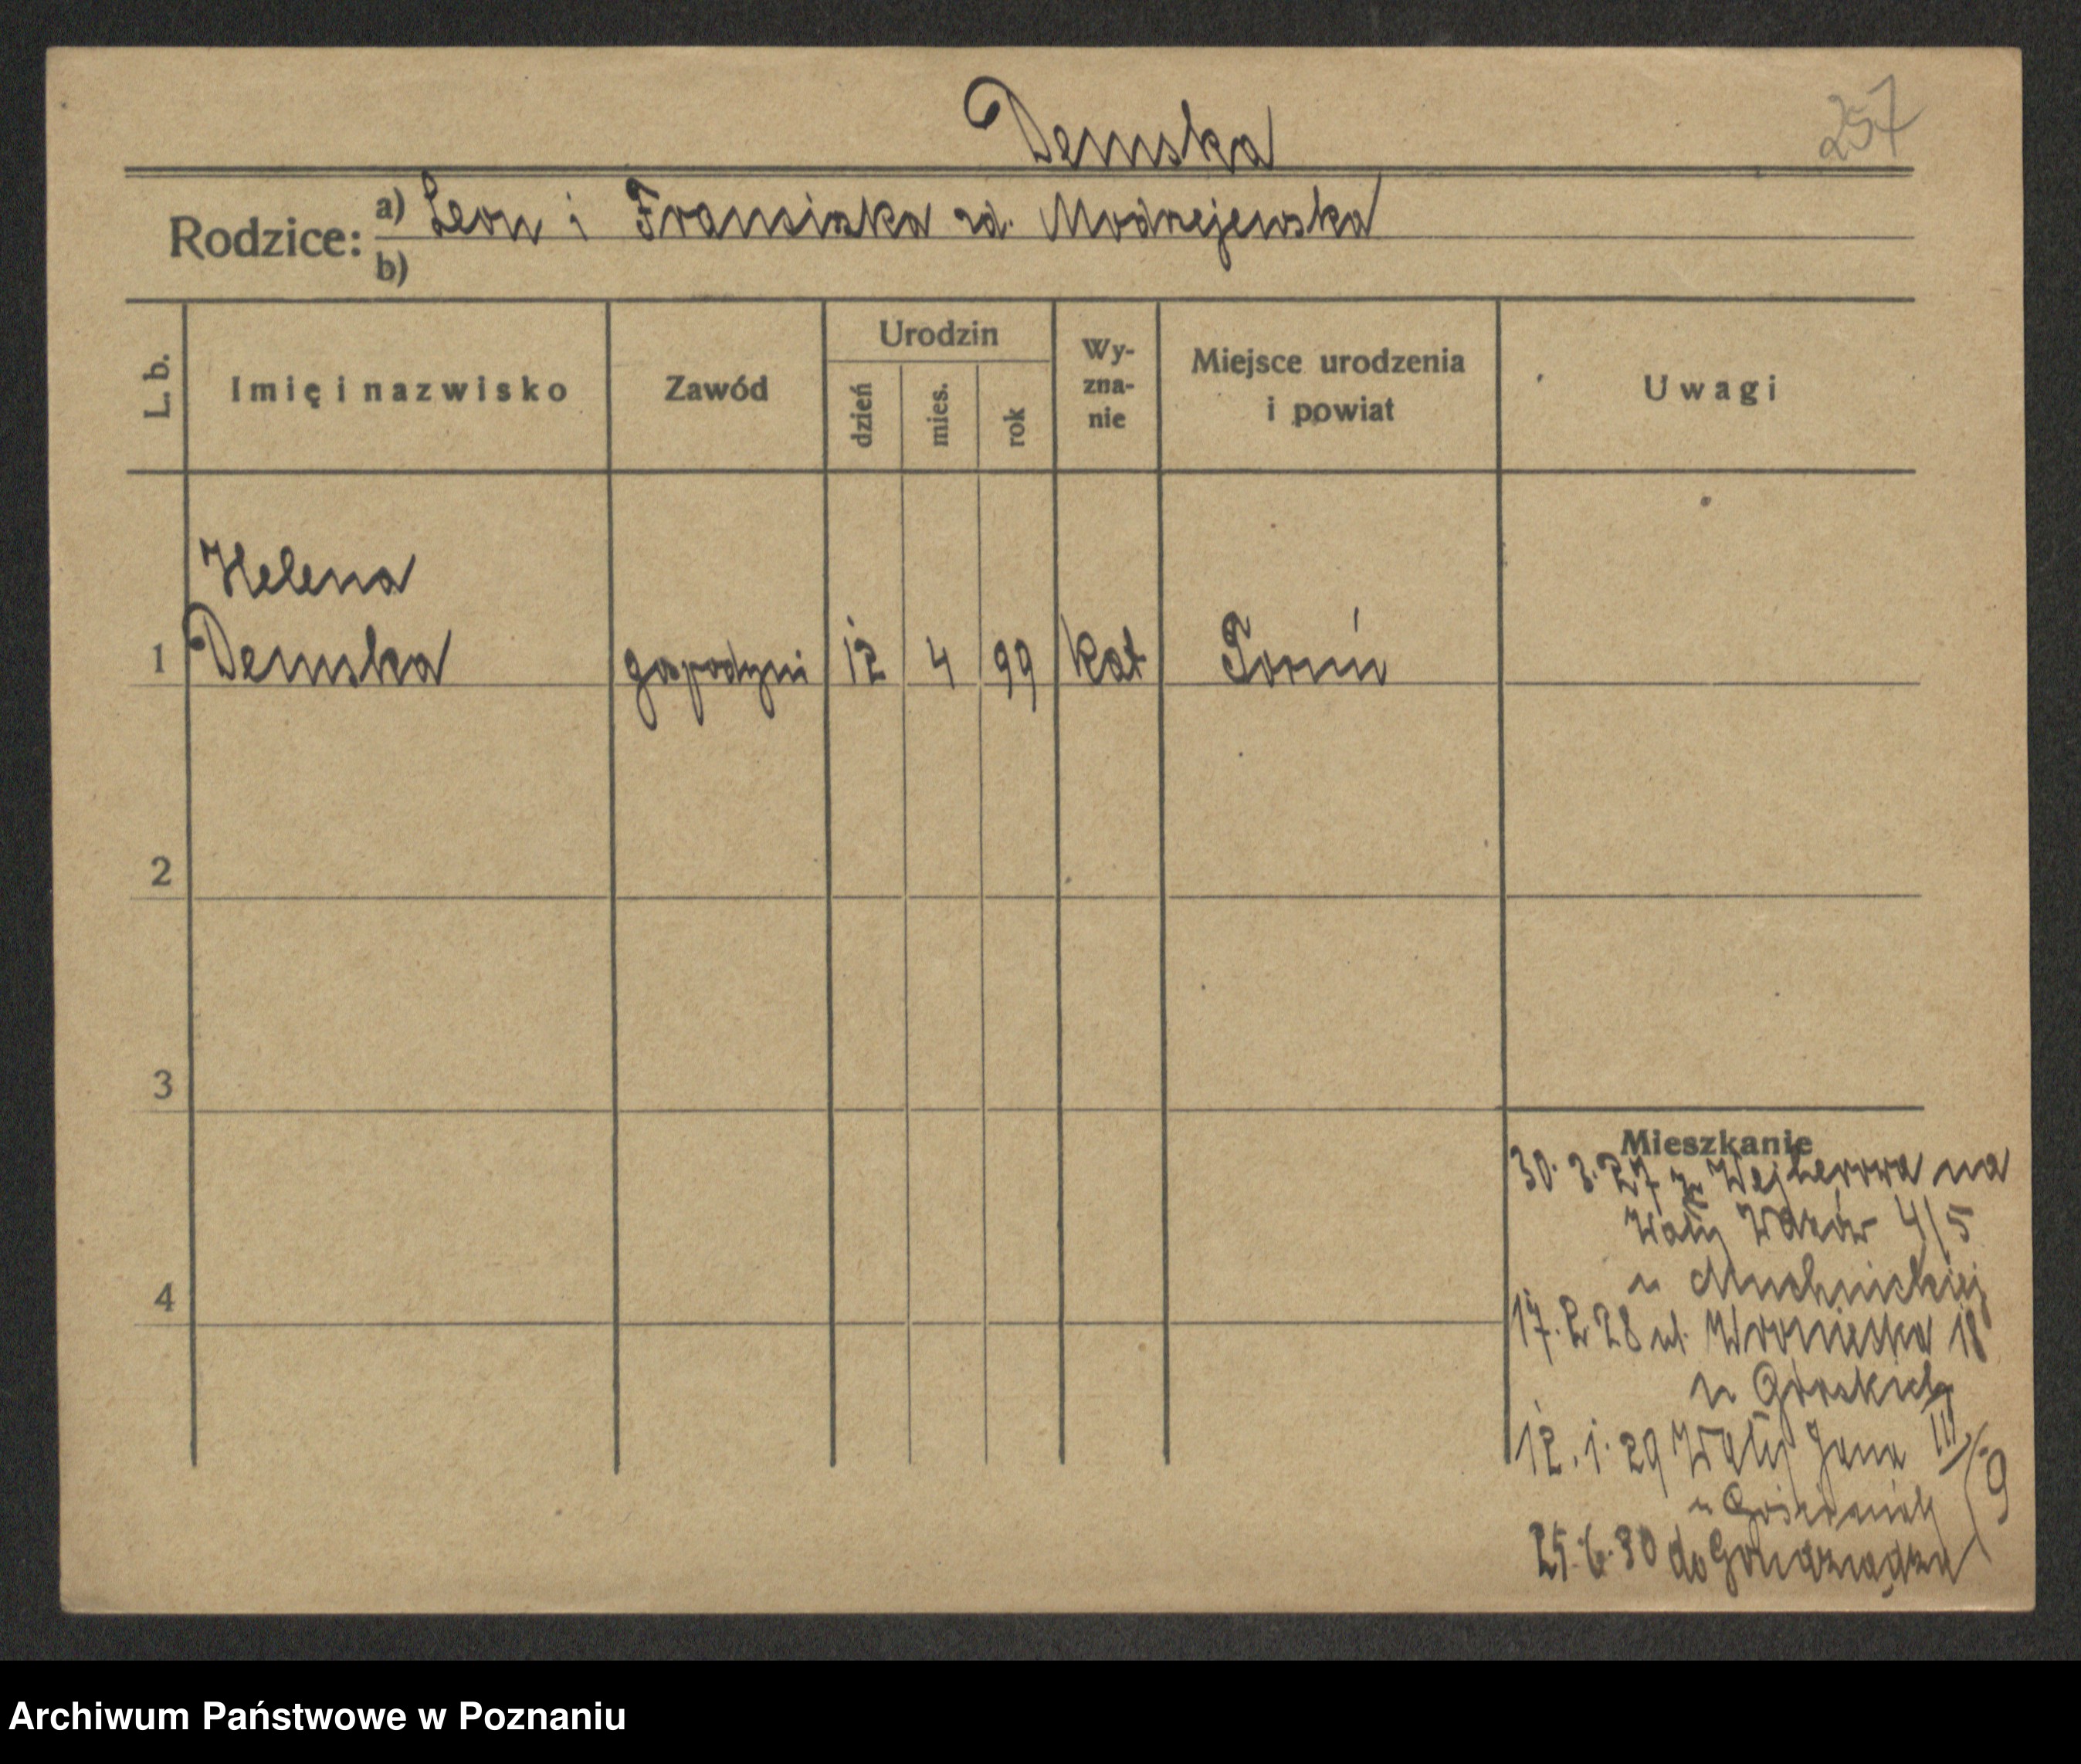 Demska
257
Rodzice: a) Leon i Fransiska zd. Modrzejewska
b)
L. b.
Imię i nazwisko
Zawód
Urodzin
dzień
mies.
rok
Wy-
zna-
nie
Miejsce urodzenia
i powiat
Uwagi
Helena
1 Demska gospodyni 12 4 99 kat Toruń
2
3
4
Mieszkanie
30. 3. 27 z Wejherowa na
Wały Wazów 4/5
u Muchnickiej
17. 2 28 ul. Wroniecka 18
u Górskich
12. 1. 29 Wały Jana III/9
u
25. 6. 30 do Grudziądza
Archiwum Państwowe w Poznaniu